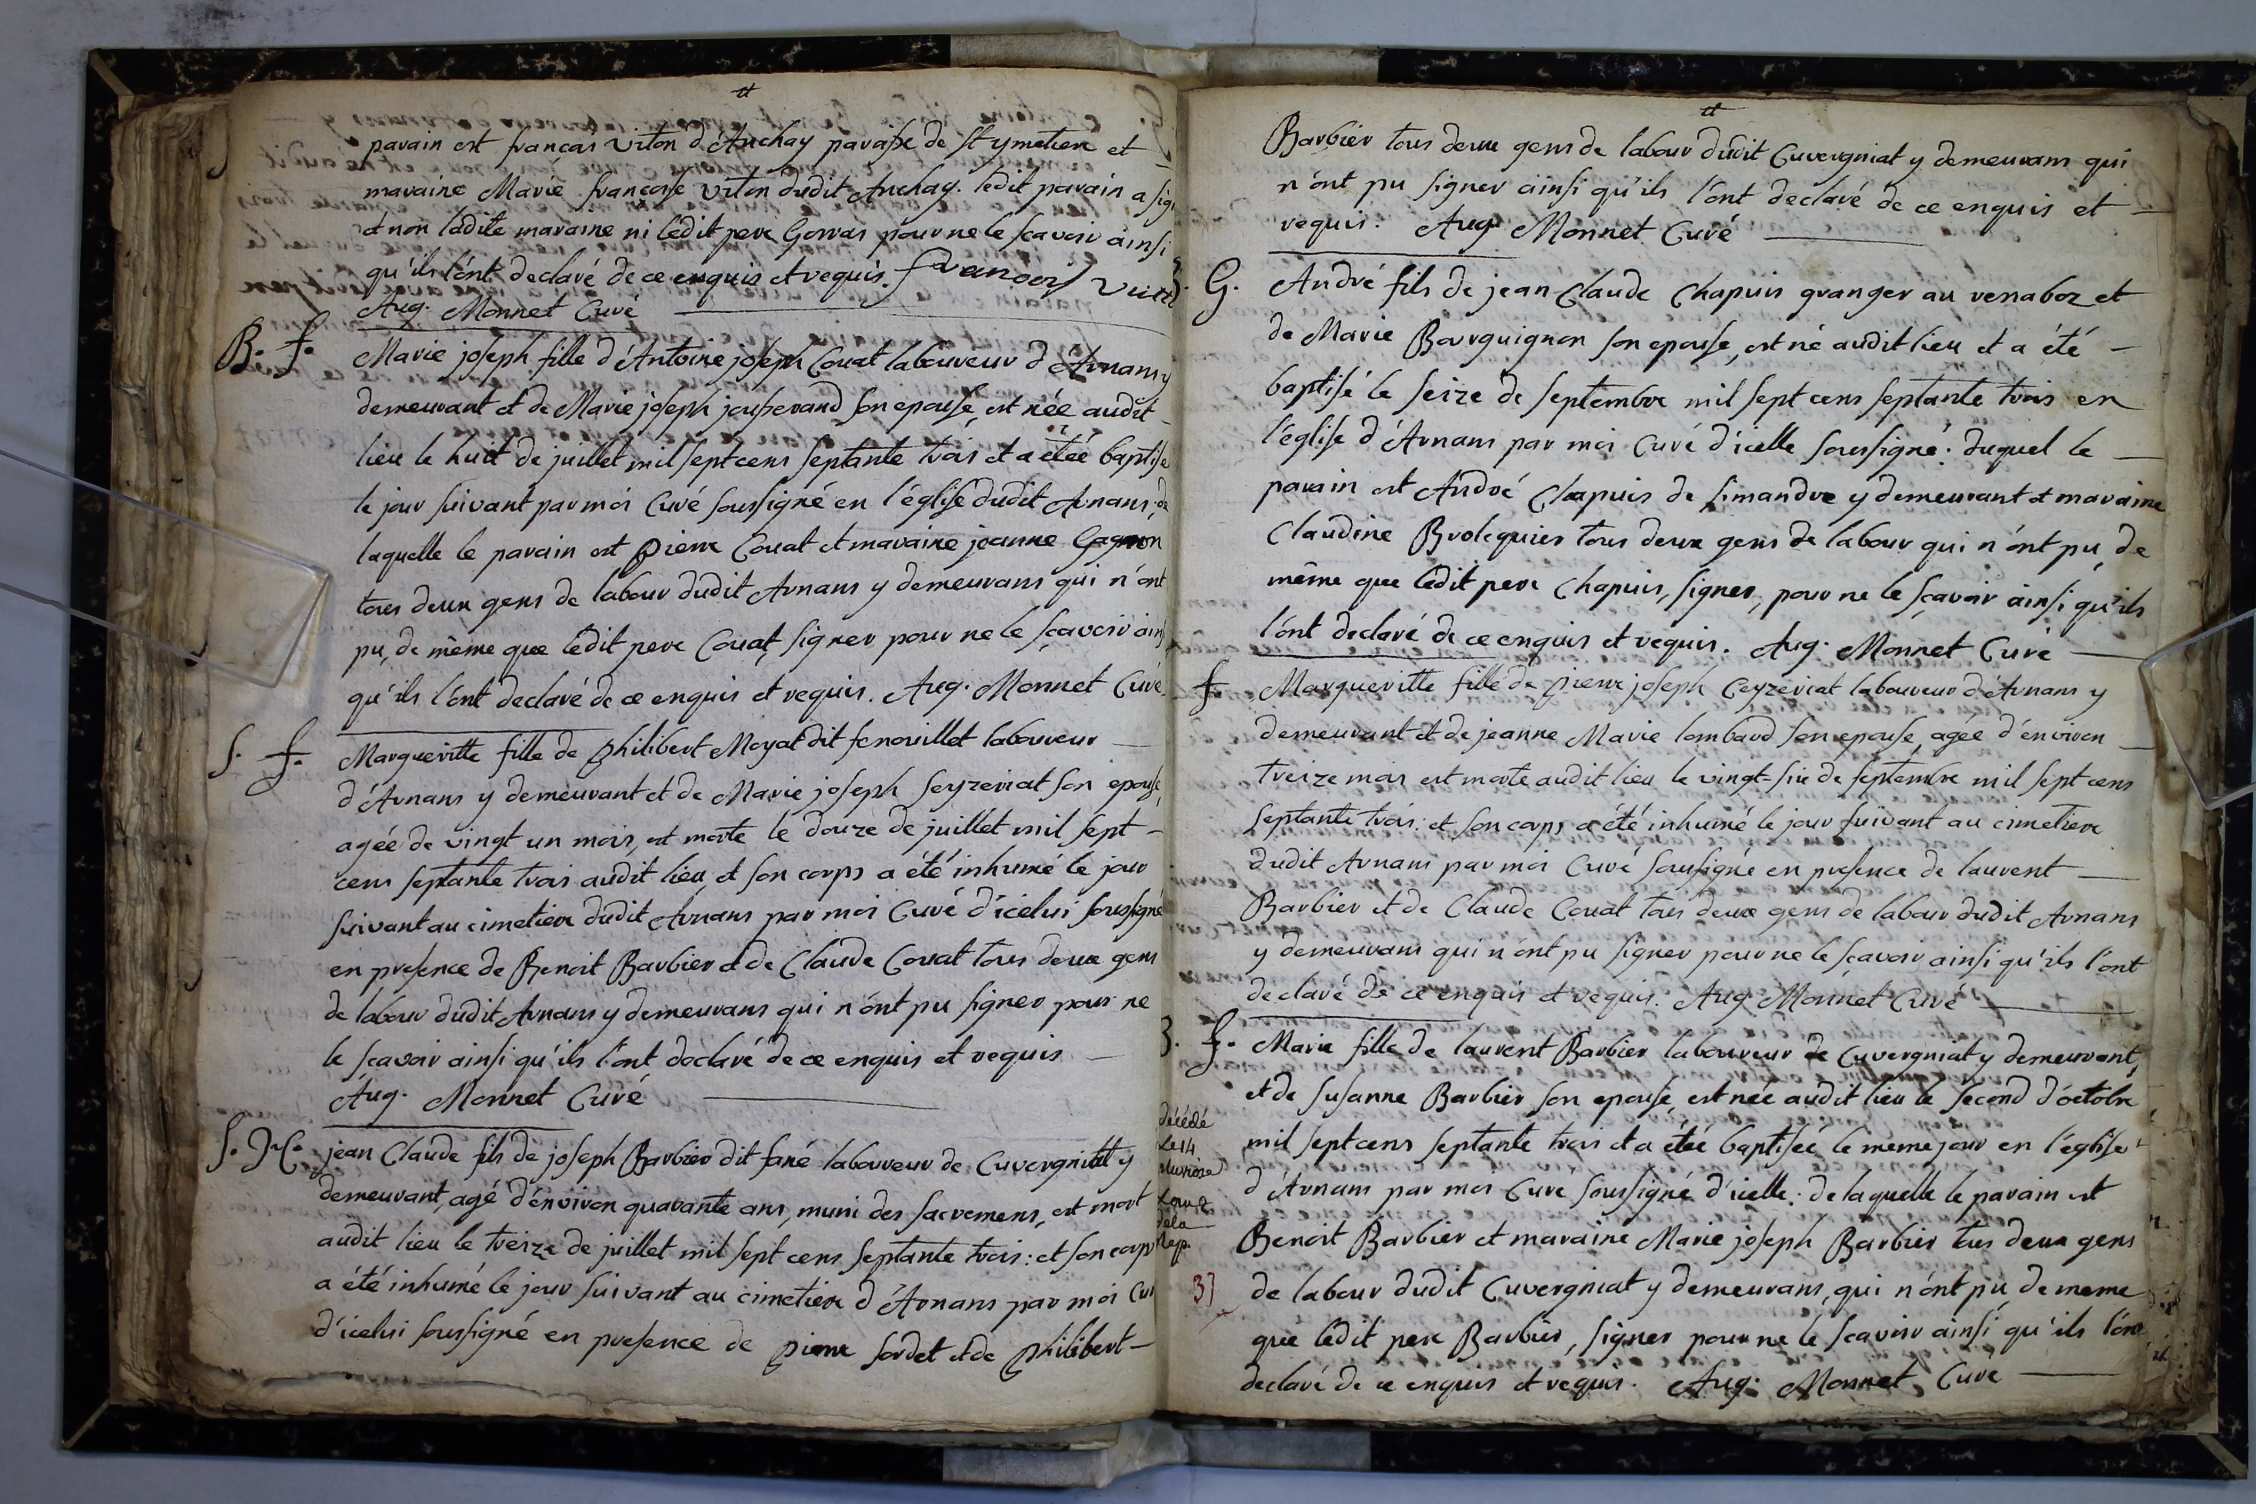 parain est françois viton d'Anchay paroisse de St ymetiere et
maraine Marie françoise viton dudit Anchay. ledit parain a sig
et non ladite maraine ni ledit pere Gorras pour ne le sçavoir ainsi
qu'ils l'ont declaré de ce enquis et requis. francois vuiton
Aug. Monnet Curé
B. f. Marie joseph fille d'Antoine joseph Couat laboureur d'Arnans y
demeurant et de Marie joseph jousserand son epouse, est née audit
lieu le huit de juillet mil sept cens septante trois et a étée baptisé
le jour suivant par moi Curé soussigné en l'église dudit Arnans, de
laquelle le parain est pierre Couat et maraine jeanne Gagnon
tous deux gens de labour dudit Arnans y demeurans qui n'ont
pu, de même que ledit pere Couat, signer pour ne le sçavoir ainsi
qu'ils l'ont declaré de ce enquis et requis. Aug. Monnet Curé
S. f. Margueritte fille de philibert Moyat dit fenouillet laboureur
d'Arnans y demeurant et de Marie joseph seyzeriat son epouse,
agée de vingt un mois, est morte le douze de juillet mil sept
cens septante trois audit lieu, et son corps a été inhumé le jour
suivant au cimetiere dudit Arnans par moi Curé d'icelui soussigné
en presence de Benoit Barbier et de Claude Couat tous deux gens
de labour dudit Arnans y demeurans qui n'ont pu signer pour ne
le sçavoir ainsi qu'ils l'ont declaré de ce enquis et requis
Aug. Monnet Curé
S. M. jean Claude fils de joseph Barbier dit fané laboureur de Cuvergniat y
demeurant, agé d'environ quarante ans, muni des sacremens, est mort
audit lieu le treize de juillet mil sept cens septante trois: et son corps
a été inhumé le jour suivant au cimetiere d'Arnans par moi Cur
d'icelui soussigné en presence de pierre sordet et de philibert
Barbier tous deux gens de labour dudit Cuvergniat y demeurans qui
n'ont pu signer ainsi qu'ils l'ont declaré de ce enquis et
requis. Aug. Monnet Curé
G. André fils de jean Claude Chapuis granger au renaboz et
de Marie Bourguignon son epouse, est né audit lieu et a été
baptisé le seize de septembre mil sept cens septante trois en
l'église d'Arnans par moi Curé d'icelle soussigné: duquel le
parain est André Chapuis de simandre y demeurant et maraine
Claudine Brolequier tous deux gens de labour qui n'ont pu, de
même que ledit pere Chapuis, signer, pour ne le sçavoir ainsi qu'ils
l'ont declaré de ce enquis et requis. Aug. Monnet Curé
f. Margueritte fille de pierre joseph Ceyzeriat laboureur d'Arnans y
demeurant et de jeanne Marie lombard son epouse, agée d'environ
treize mois est morte audit lieu le vingt-six de septembre mil sept cens
septante trois: et son corps a été inhumé le jour suivant au cimetiere
dudit Arnans par moi Curé soussigné en presence de laurent
Barbier et de Claude Couat tous deux gens de labour dudit Arnans
y demeurans qui n'ont pu signer pour ne le sçavoir ainsi qu'ils l'ont
declaré de ce enquis et requis. Aug Monnet Curé
B. f. Marie fille de laurent Barbier laboureur de Cuvergniat y demeurant,
et de Susanne Barbier son epouse, est née audit lieu le second d'octobre
mil sept cens septante trois et a étée baptisée le meme jour en l'église
d'Arnans par moi Curé soussigné d'icelle: de laquelle le parain est
Benoit Barbier et maraine Marie joseph Barbier tous deux gens
de labour dudit Cuvergniat y demeurans, qui n'ont pu, de meme
que ledit pere Barbier, signer pour ne le sçavoir ainsi qu'ils l'ont
declaré de ce enquis et requis. Aug. Monnet Curé
décédé
Le 14
pluviose
dela
Rep.